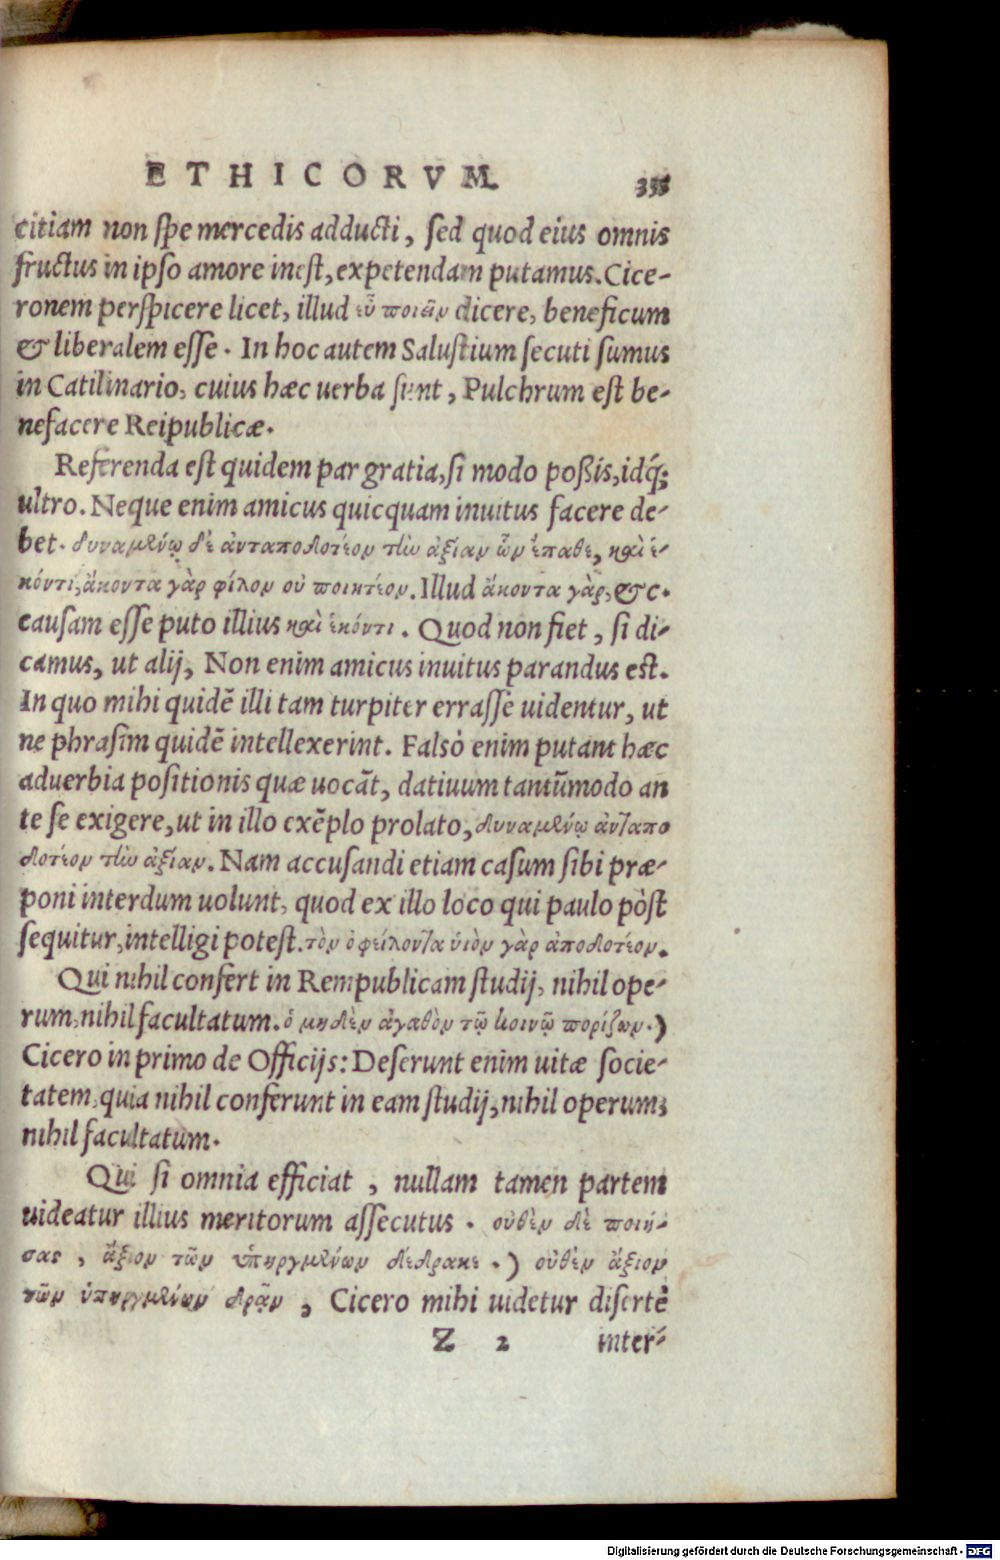 ETHICORVM.
citiam non spe mercedis adducti, sed quod eius omnis
fructus in ipso amore inest, expetendam putamus. Cice-
ronem perspicere licet, illud εὖ ποιεῖν dicere, beneficum
& liberalem esse. In hoc autem Salustium secuti sumus
in Catilinario, cuius hæc uerba sunt, Pulchrum est be-
nefacere Reipublicæ.
Referenda est quidem par gratia, si modo poßis, idq́;
ultro. Neque enim amicus quicquam inuitus facere de-
bet. δυναμένῳ δὲ ἀνταποδοτέον τὴν ἀξίαν ὧν ἔπαθε, καὶ ἑ-
κόντι, ἄκοντα γὰρ φίλον οὐ ποιητέον. Illud ἄκοντα γὰρ, &c.
causam esse puto illius καὶ ἑκόντι. Quod non fiet, si di-
camus, ut alij, Non enim amicus inuitus parandus est.
In quo mihi quidē illi tam turpiter errasse uidentur, ut
ne phrasim quidē intellexerint. Falsò enim putant hæc
aduerbia positionis quæ uocāt, datiuum tantūmodo an
te se exigere, ut in illo exēplo prolato, δυναμένῳ ἀνταπο
δοτέον τὴν ἀξίαν. Nam accusandi etiam casum sibi præ-
poni interdum uolunt, quod ex illo loco qui paulo pòst
sequitur, intelligi potest. τὸν ὀφείλοντα ὑιὸν γὰρ ἀποδοτέον.
Qui nihil confert in Rempublicam studij, nihil ope-
rum, nihil facultatum. ὁ μηδὲν ἀγαθὸν τῷ κοινῷ πορίζων.)
Cicero in primo de Officijs: Deserunt enim uitæ socie-
tatem, quia nihil conferunt in eam studij, nihil operum,
nihil facultatum.
Qui si omnia efficiat, nullam tamen partem
uideatur illius meritorum assecutus. οὐθὲν δὲ ποιή-
σας, ἄξιον τῶν ὑπηργμένων δέδρακε.) οὐθὲν ἄξιον
τῶν ὑπηργμένων δρᾷν, Cicero mihi uidetur disertè
Z 2 inter-
Digitalisierung gefördert durch die Deutsche Forschungsgemeinschaft - DFG